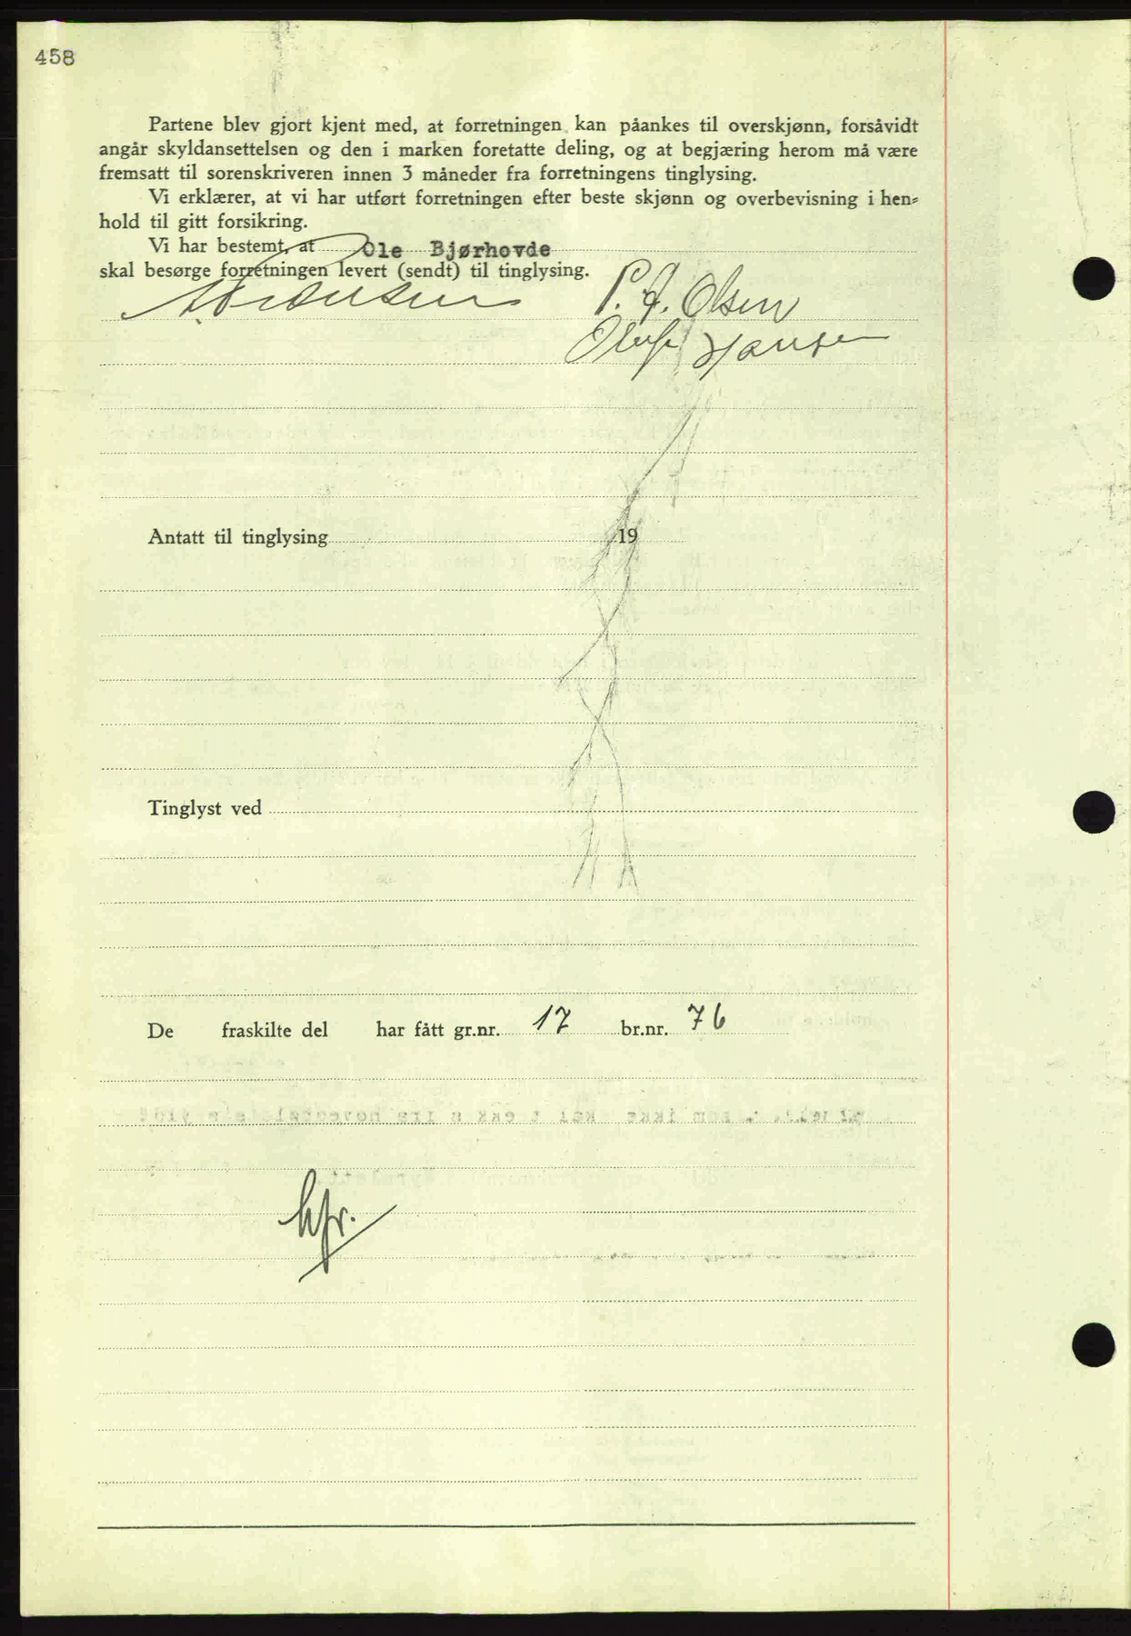 458
Partene blev gjort kjent med, at forretningen kan påankes til overskjønn, forsåvidt
angår skyldansettelsen og den i marken foretatte deling, og at begjæring herom må være
fremsatt til sorenskriveren innen 3 måneder fra forretningens tinglysing.
Vi erklærer, at vi har utført forretningen efter beste skjønn og overbevisning i hen-
hold til gitt forsikring.
Vi har bestemt, at Ole Bjørhovde
skal besørge forretningen levert (sendt) til tinglysing.
P. J. Olsen
Oluf Hansen
Antatt til tinglysing 19
Tinglyst ved
De fraskilte del har fått gr.nr. 17 br.nr. 76
hfr.